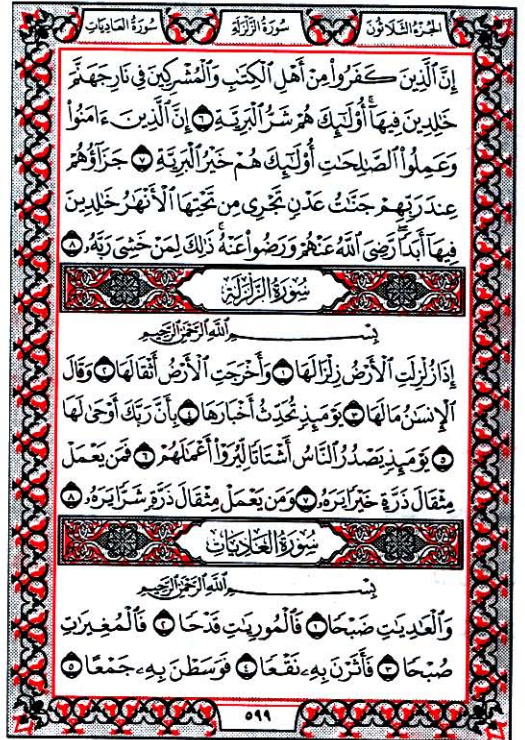 الجزء الثلاثون سورة الزلزلة سورة العاديات
إِنَّ ٱلَّذِينَ كَفَرُوا۟ مِنْ أَهْلِ ٱلْكِتَٰبِ وَٱلْمُشْرِكِينَ فِى نَارِ جَهَنَّمَ
خَٰلِدِينَ فِيهَآ ۚ أُو۟لَٰٓئِكَ هُمْ شَرُّ ٱلْبَرِيَّةِ ٦ إِنَّ ٱلَّذِينَ ءَامَنُوا۟
وَعَمِلُوا۟ ٱلصَّٰلِحَٰتِ أُو۟لَٰٓئِكَ هُمْ خَيْرُ ٱلْبَرِيَّةِ ٧ جَزَآؤُهُمْ
عِندَ رَبِّهِمْ جَنَّٰتُ عَدْنٍ تَجْرِى مِن تَحْتِهَا ٱلْأَنْهَٰرُ خَٰلِدِينَ
فِيهَآ أَبَدًا ۖ رَّضِىَ ٱللَّهُ عَنْهُمْ وَرَضُوا۟ عَنْهُ ۚ ذَٰلِكَ لِمَنْ خَشِىَ رَبَّهُۥ ٨
سُورَةُ الزَّلْزَلَةِ
بِسْمِ ٱللَّهِ ٱلرَّحْمَٰنِ ٱلرَّحِيمِ
إِذَا زُلْزِلَتِ ٱلْأَرْضُ زِلْزَالَهَا ١ وَأَخْرَجَتِ ٱلْأَرْضُ أَثْقَالَهَا ٢ وَقَالَ
ٱلْإِنسَٰنُ مَا لَهَا ٣ يَوْمَئِذٍ تُحَدِّثُ أَخْبَارَهَا ٤ بِأَنَّ رَبَّكَ أَوْحَىٰ لَهَا
٥ يَوْمَئِذٍ يَصْدُرُ ٱلنَّاسُ أَشْتَاتًا لِّيُرَوْا۟ أَعْمَٰلَهُمْ ٦ فَمَن يَعْمَلْ
مِثْقَالَ ذَرَّةٍ خَيْرًا يَرَهُۥ ٧ وَمَن يَعْمَلْ مِثْقَالَ ذَرَّةٍ شَرًّا يَرَهُۥ ٨
سُورَةُ العَادِيَاتِ
بِسْمِ ٱللَّهِ ٱلرَّحْمَٰنِ ٱلرَّحِيمِ
وَٱلْعَٰدِيَٰتِ ضَبْحًا ١ فَٱلْمُورِيَٰتِ قَدْحًا ٢ فَٱلْمُغِيرَٰتِ
صُبْحًا ٣ فَأَثَرْنَ بِهِۦ نَقْعًا ٤ فَوَسَطْنَ بِهِۦ جَمْعًا ٥
٥٩٩